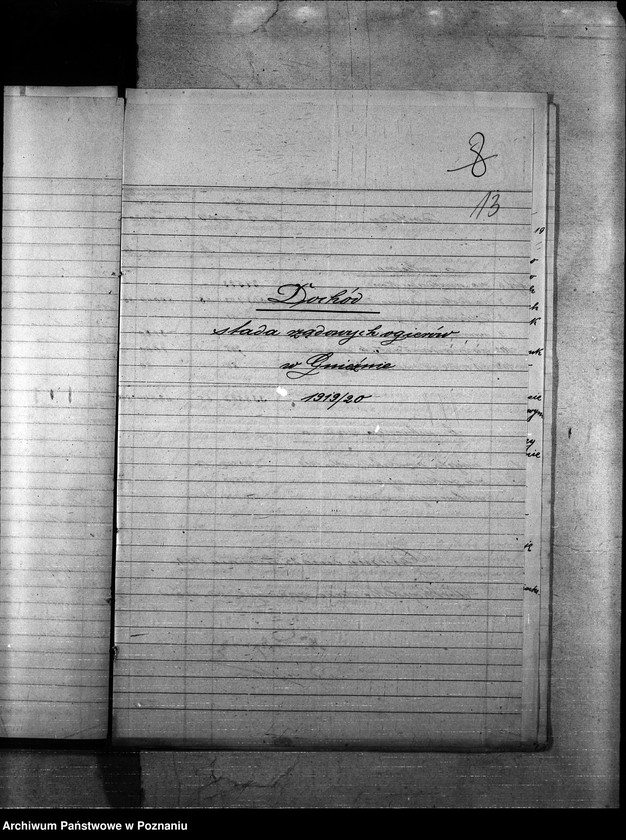 8
13
Dochód
stada rządowych ogierów
w Gnieźnie
1919/20
Archiwum Państwowe w Poznaniu